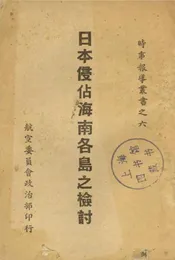 時事報導叢書之六
日本侵佔海南各島之檢討
航空委員會政治部印行